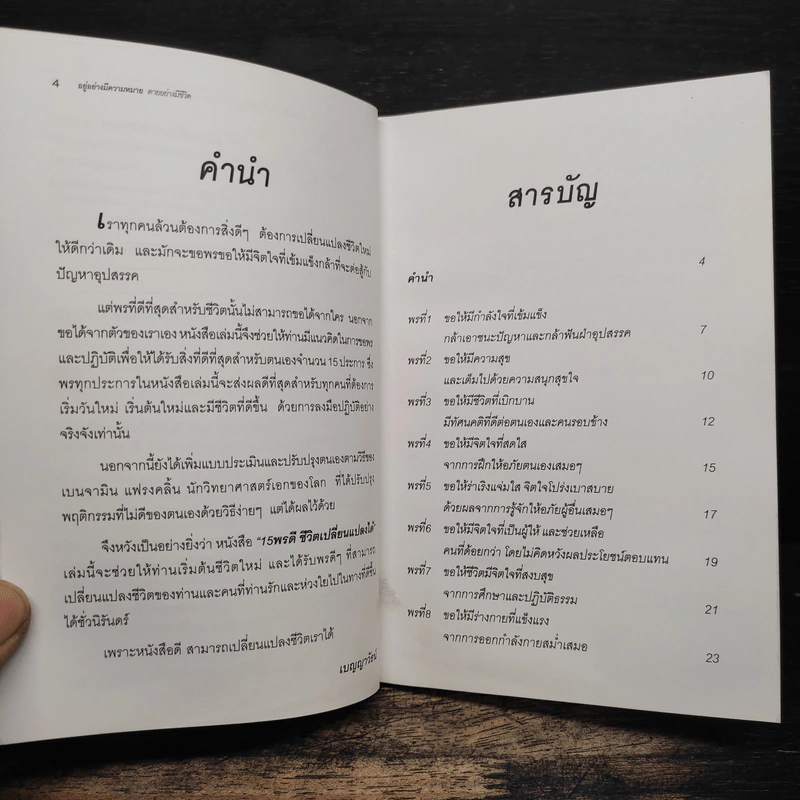 4 อยู่อย่างมีความหมาย ตายอย่างมีชีวิต
คำนำ
เราทุกคนล้วนต้องการสิ่งดีๆ ต้องการเปลี่ยนแปลงชีวิตใหม่
ให้ดีกว่าเดิม และมักจะขอพรขอให้มีจิตใจที่เข้มแข็งกล้าที่จะต่อสู้กับ
ปัญหาอุปสรรค
แต่พรที่ดีที่สุดสำหรับชีวิตนั้นไม่สามารถขอได้จากใคร นอกจาก
ขอได้จากตัวของเราเอง หนังสือเล่มนี้จึงช่วยให้ท่านมีแนวคิดในการขอพร
และปฏิบัติเพื่อให้ได้รับสิ่งที่ดีที่สุดสำหรับตนเองจำนวน 15 ประการ ซึ่ง
พรทุกประการในหนังสือเล่มนี้จะส่งผลดีที่สุดสำหรับทุกคนที่ต้องการ
เริ่มวันใหม่ เริ่นต้นใหม่และมีชีวิตที่ดีขึ้น ด้วยการลงมือปฏิบัติอย่าง
จริงจังเท่านั้น
นอกจากนี้ยังได้เพิ่มแบบประเมินและปรับปรุงตนเองตามวิธีของ
เบนจามิน แฟรงคลิ้น นักวิทยาศาสตร์เอกของโลก ที่ได้ปรับปรุง
พฤติกรรมที่ไม่ดีของตนเองด้วยวิธีง่ายๆ แต่ได้ผลไว้ด้วย
จึงหวังเป็นอย่างยิ่งว่า หนังสือ "15พรดี ชีวิตเปลี่ยนแปลงได้"
เล่มนี้จะช่วยให้ท่านเริ่มต้นชีวิตใหม่ และได้รับพรดีๆ ที่สามารถ
เปลี่ยนแปลงชีวิตของท่านและคนที่ท่านรักและห่วงใยไปในทางที่ดีขึ้น
ได้ชั่วนิรันดร์
เพราะหนังสือดี สามารถเปลี่ยนแปลงชีวิตเราได้
เบญญาวัธน์
สารบัญ
คำนำ 4
พรที่1 ขอให้มีกำลังใจที่เข้มแข็ง
กล้าเอาชนะปัญหาและกล้าฟันฝ่าอุปสรรค 7
พรที่2 ขอให้มีความสุข
และเต็มไปด้วยความสนุกสุขใจ 10
พรที่3 ขอให้มีชีวิตที่เบิกบาน
มีทัศนคติที่ดีต่อตนเองและคนรอบข้าง 12
พรที่4 ขอให้มีจิตใจที่สดใส
จากการฝึกให้อภัยตนเองเสมอๆ 15
พรที่5 ขอให้ร่าเริงแจ่มใส จิตใจโปร่งเบาสบาย
ด้วยผลจากการรู้จักให้อภัยผู้อื่นเสมอๆ 17
พรที่6 ขอให้มีจิตใจที่เป็นผู้ให้ และช่วยเหลือ
คนที่ด้อยกว่า โดยไม่คิดหวังผลประโยชน์ตอบแทน 19
พรที่7 ขอให้ชีวิตมีจิตใจที่สงบสุข
จากการศึกษาและปฏิบัติธรรม 21
พรที่8 ขอให้มีร่างกายที่แข็งแรง
จากการออกกำลังกายสม่ำเสมอ 23